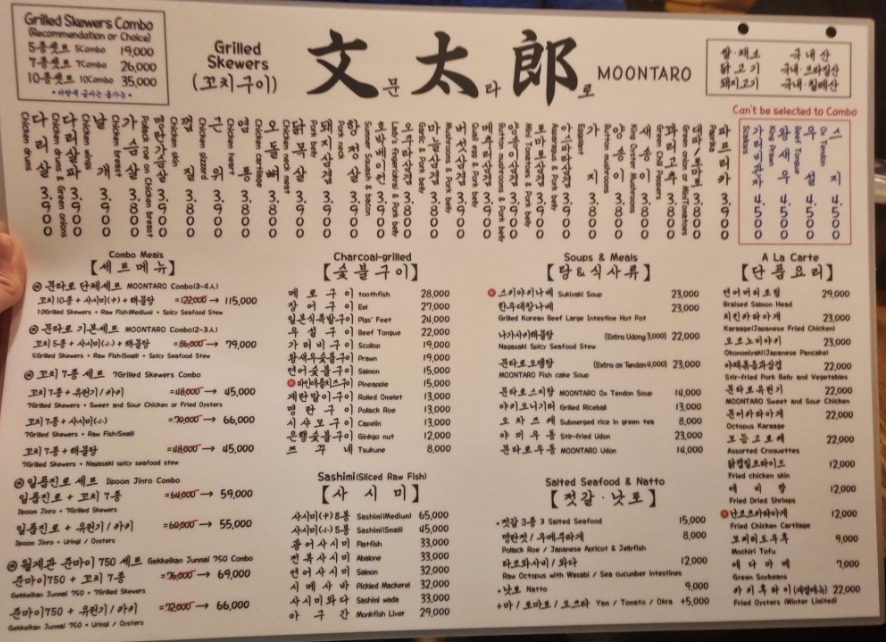 Grilled Skewers Combo
(Recommendation or Choice)
5종셋트 5Combo 19,000
7종셋트 7Combo 26,000
10종셋트 10Combo 35,000
Grilled
Skewers
(꼬치구이)
文문太타郎로 MOONTARO
쌀·채소 국내산
닭고기 국내·브라질산
돼지고기 국내·칠레산
Can't be selected to Combo
다리살 3,900
Chicken drums
다리살파 3,900
Chicken drums & Green onions
날개 3,900
Chicken wings
가슴살 3,800
Chicken breast
Pollack roe on Chicken breast
껍질
Chicken skin
근위
Chicken gizzard
염통
Chicken heart
Chicken cartilage
닭목살
Chicken neck meat
돼지삼겹
Pork belly
항정살
Pork neck
Summer Squash & bacon
Lady's finger(okra) & Pork belly
Garlic & Pork belly
Mushrooms & Pork belly
Quail egg & Pork belly
Button mushrooms & Pork belly
Mini Tomatoes & Pork belly
Asparagus & Pork belly
가지 3,800
Eggplant
양송이
Button mushrooms
새송이
King Oyster mushrooms
Green Chili Peppers
Green onion or MiniTomatoes
파프리카 3,900
Paprika
가리비관자 4,500
Scallops
왕새우 4,500
King Prawn
우설 4,500
Beef Tongue
스지 4,500
Ox Tendon
Combo Meals
【세트메뉴】
문타로 단체세트 MOONTARO Combo(3-4人)
꼬치10종 + 사시미(中) + 해물탕 =122,000 → 115,000
10Grilled Skewers + Raw Fish(Medium) + Spicy Seafood Stew
문타로 기본세트 MOONTARO Combo(2-3人)
꼬치5종 + 사시미(小) + 해물탕 =86,000 → 79,000
5Grilled Skewers + Raw Fish(Small) + Spicy Seafood Stew
꼬치 7종세트 7Grilled Skewers Combo
꼬치 7종 + 유린기/카키 =48,000 → 45,000
7Grilled Skewers + Sweet and Sour Chicken or Fried Oysters
꼬치 7종 + 사시미(小) =70,000 → 66,000
7Grilled Skewers + Raw Fish(Small)
꼬치 7종 + 해물탕 =48,000 → 45,000
7Grilled Skewers + Nagasaki spicy seafood stew
일품진로 세트 Ilpoon Jinro Combo
일품진로 + 꼬치 7종 =64,000 → 59,000
Ilpoon Jinro + 7Grilled Skewers
일품진로 + 유린기/카키 =60,000 → 55,000
Ilpoon Jinro + Uringi / Oysters
월계관 준마이 750 세트 Gekkeikan Junmai 750 Combo
준마이750 + 꼬치 7종 =76,000 → 69,000
Gekkeikan Junmai 750 + 7Grilled Skewers
준마이750 + 유린기/카키 =72,000 → 66,000
Gekkeikan Junmai 750 + Uringi / Oysters
Charcoal-grilled
【숯불구이】
메로구이 toothfish 28,000
장어구이 Eel 27,000
일본식족발구이 Pigs' Feet 24,000
우설구이 Beef Tongue 22,000
가리비구이 Scallop 19,000
왕새우숯불구이 Prawn 19,000
연어숯불구이 Salmon 15,000
파인애플치즈구이 Pineapple 15,000
계란말이구이 Rolled Omelet 13,000
명란구이 Pollack Roe 13,000
시샤모구이 Capelin 13,000
은행숯불구이 Ginkgo nut 12,000
쯔쿠네 Tsukune 8,000
Sashimi(Sliced Raw Fish)
【사시미】
사시미(中)8종 Sashimi(Medium) 65,000
사시미(小)5종 Sashimi(Small) 45,000
광어사시미 Flatfish 33,000
전복사시미 Abalone 33,000
연어사시미 Salmon 32,000
시메사바 Pickled Mackerel 32,000
사시미와다 Sashimi wada 33,000
아구간 Monkfish Liver 29,000
Soups & Meals
【탕&식사류】
스키야키나베 Sukiyaki Soup 23,000
한우대창나베 23,000
Grilled Korean Beef Large Intestine Hot Pot
나가사키해물탕 (Extra Udong 3,000) 22,000
Nagasaki Spicy Seafood Stew
문타로오뎅탕 (Extra ox Tendon 4,000) 23,000
MOONTARO Fish cake Soup
문타로스지탕 MOONTARO Ox Tendon Soup 14,000
야키오니기리 Grilled Riceball 13,000
오차즈케 Submerged rice in green tea 8,000
야끼우동 Stir-fried Udon 23,000
문타로우동 MOONTARO Udon 14,000
Salted Seafood & Natto
【젓갈·낫토】
젓갈 3종 3 Salted Seafood 15,000
명란젓/우메쿠라게 8,000
Pollack Roe / Japanese Apricot & Jellyfish
타코와사비/와다 12,000
Raw Octopus with Wasabi / Sea cucumber intestines
낫토 Natto 9,000
+마/토마토/오크라 Yam / Tomato / Okra +5,000
A La Carte
【단품요리】
연어머리조림 29,000
Braised Salmon Head
치킨카라아게 23,000
Karaage(Japanese Fried Chicken)
오코노미야키 23,000
Okonomiyaki(Japanese Pancake)
야채볶음과삼겹 22,000
Stir-fried Pork Belly and Vegetables
문타로유린기 22,000
MOONTARO Sweet and Sour Chicken
문어카라아게 22,000
Octopus Karaage
모듬고로케 22,000
Assorted Croquettes
닭껍질튀김 12,000
Fried chicken skin
에비짱 12,000
Fried Dried Shrimps
난코츠카라아게 12,000
Fried Chicken Cartilage
모찌리도후 9,000
Mochiri Tofu
에다마메 7,000
Green Soybeans
카키후라이(계절메뉴) 22,000
Fried Oysters (Winter Limited)